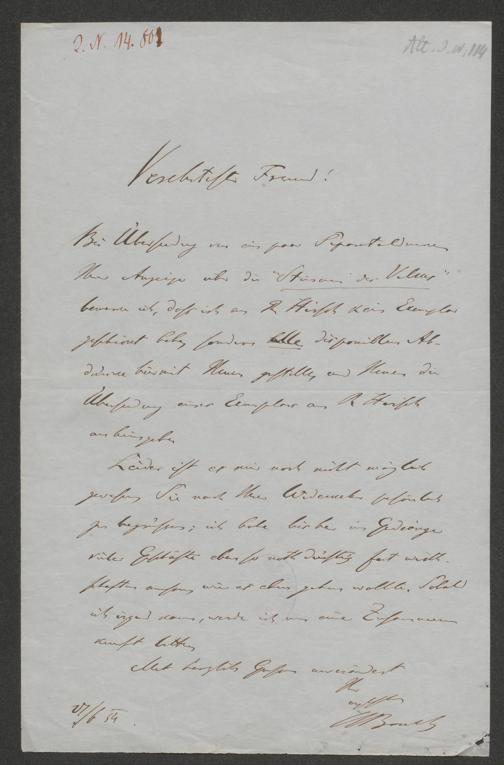 2. N. 14.801
Verehrtester Freund!
Bei Übersendung von ein paar Separatabdrücken
Ihrer Anzeige über die "Stimmen der Völker"
bemerke ich, daß ich an R Hirsch kein Exemplar
geschickt habe, sondern alle disponiblen Ab-
drücke hiermit Ihnen zustelle, und Ihnen die
Übersendung eines Exemplars an R Hirsch
anheimgebe.
Leider ist es mir noch nicht möglich
gewesen Sie nach Ihrer Wiederkehr persönlich
zu begrüßen; ich habe bisher im Gedränge
vieler Geschäfte eben so nothdürftig
wie es eben gehen wollte. Sobald
ich irgend kann, werde ich um eine Zusammen-
kunft bitten.
Mit herzlichem Gruß unverändert
Ihr
54.